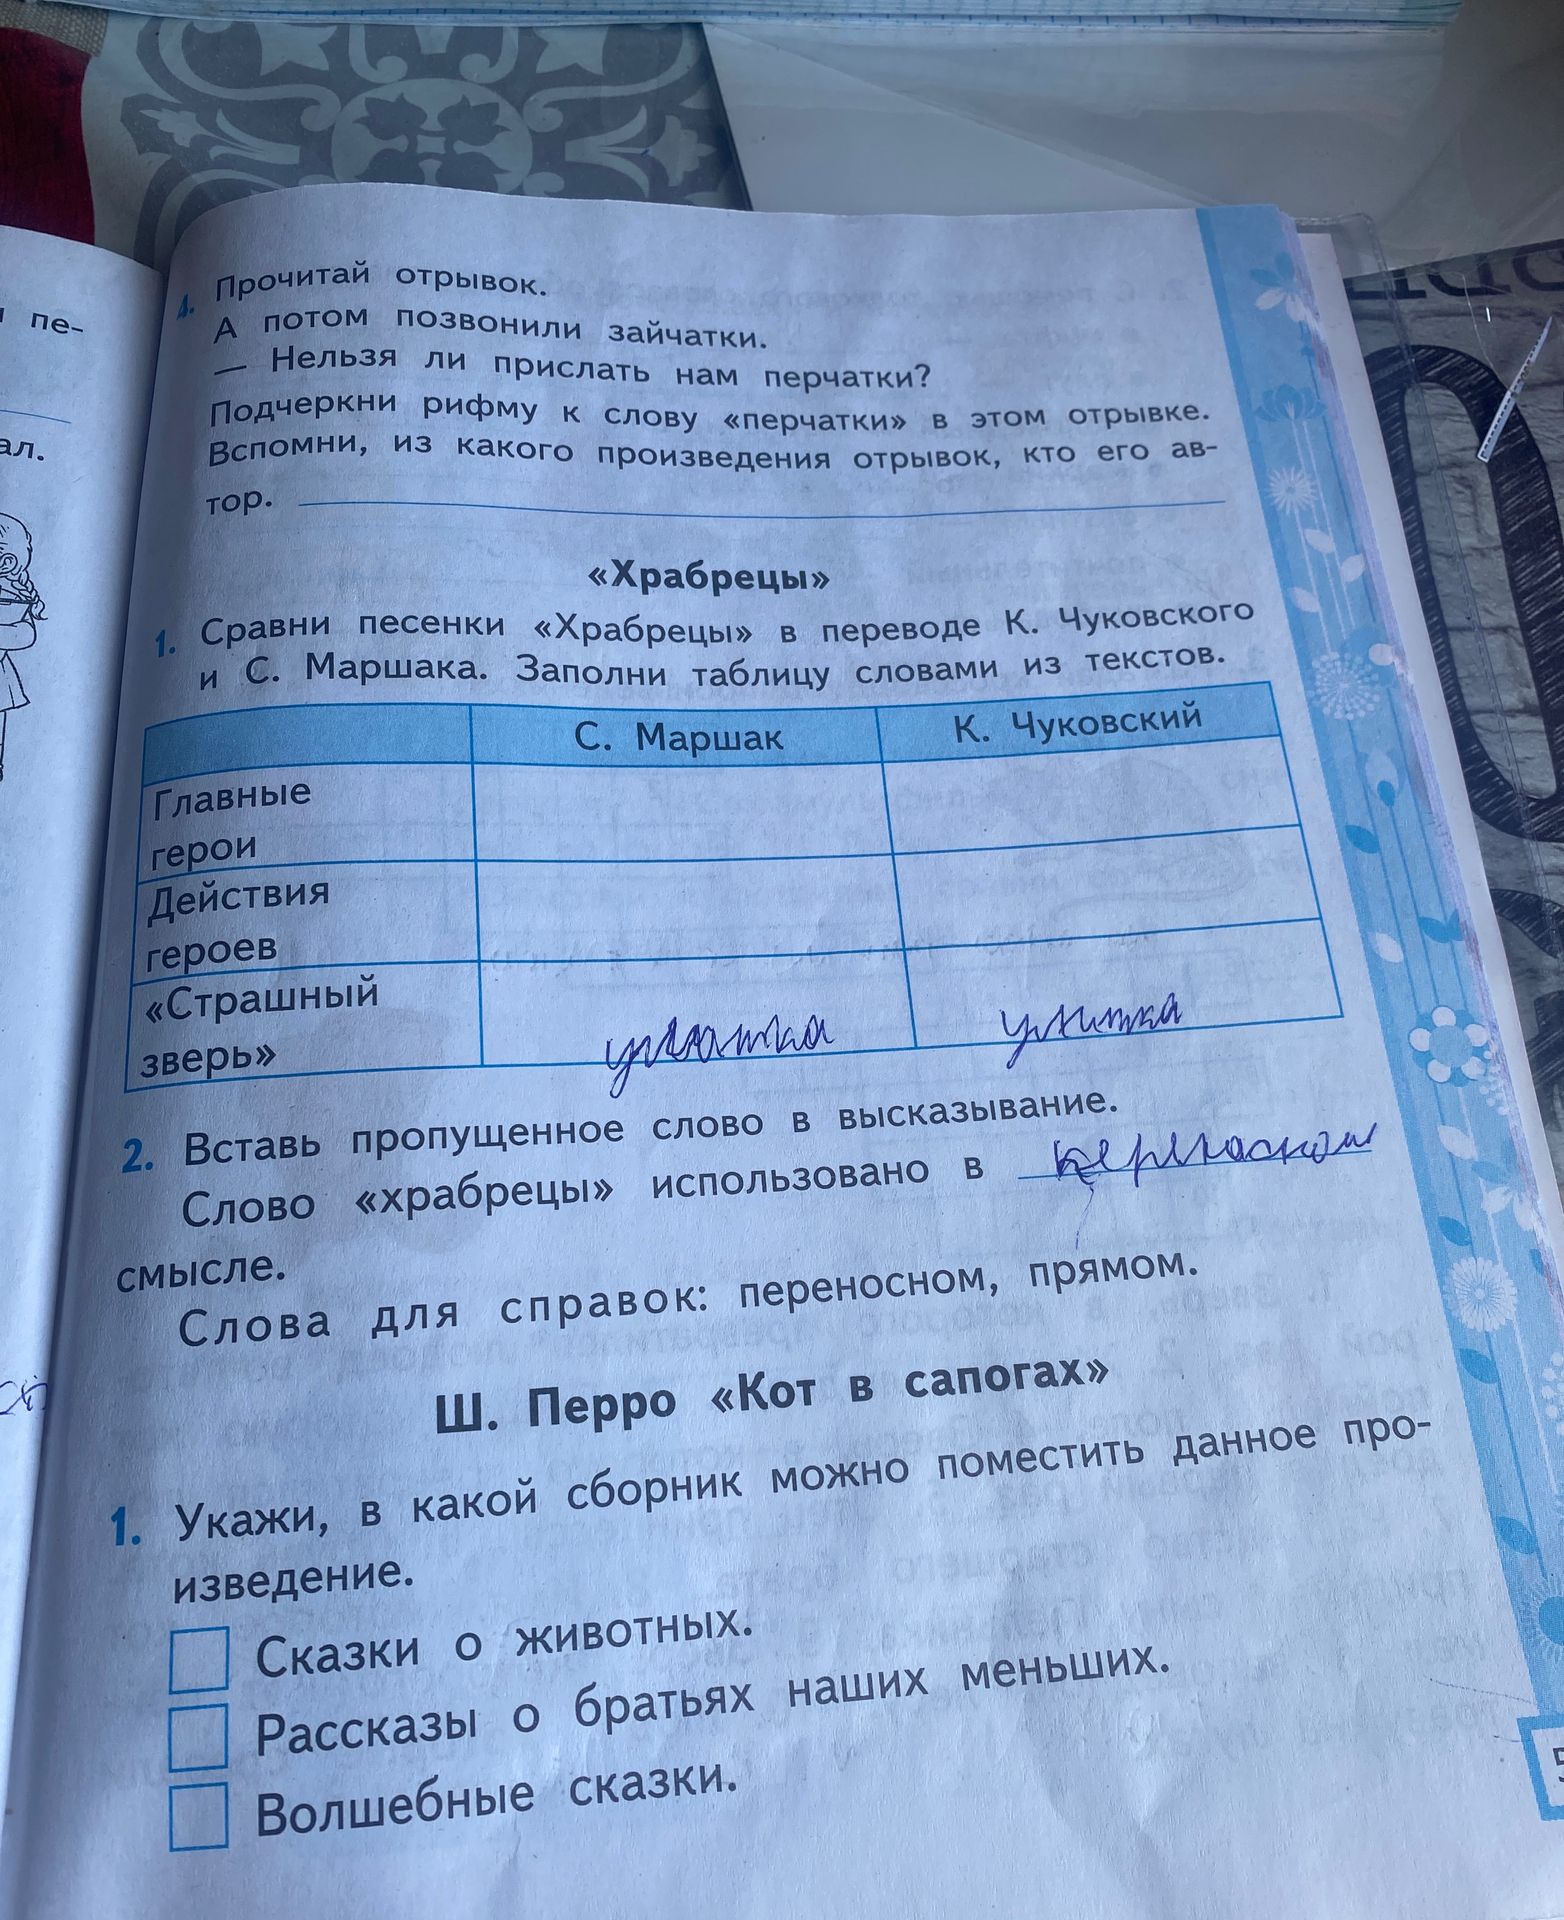 пе-
ал.
4. Прочитай отрывок.
А потом позвонили зайчатки.
— Нельзя ли прислать нам перчатки?
Подчеркни рифму к слову «перчатки» в этом отрывке.
Вспомни, из какого произведения отрывок, кто его ав-
тор.
«Храбрецы»
1. Сравни песенки «Храбрецы» в переводе К. Чуковского
и С. Маршака. Заполни таблицу словами из текстов.
С. Маршак К. Чуковский
Главные
герои
Действия
героев
«Страшный
зверь» улитка улитка
2. Вставь пропущенное слово в высказывание.
Слово «храбрецы» использовано в переносном
смысле.
Слова для справок: переносном, прямом.
Ш. Перро «Кот в сапогах»
1. Укажи, в какой сборник можно поместить данное про-
изведение.
Сказки о животных.
Рассказы о братьях наших меньших.
Волшебные сказки.
5